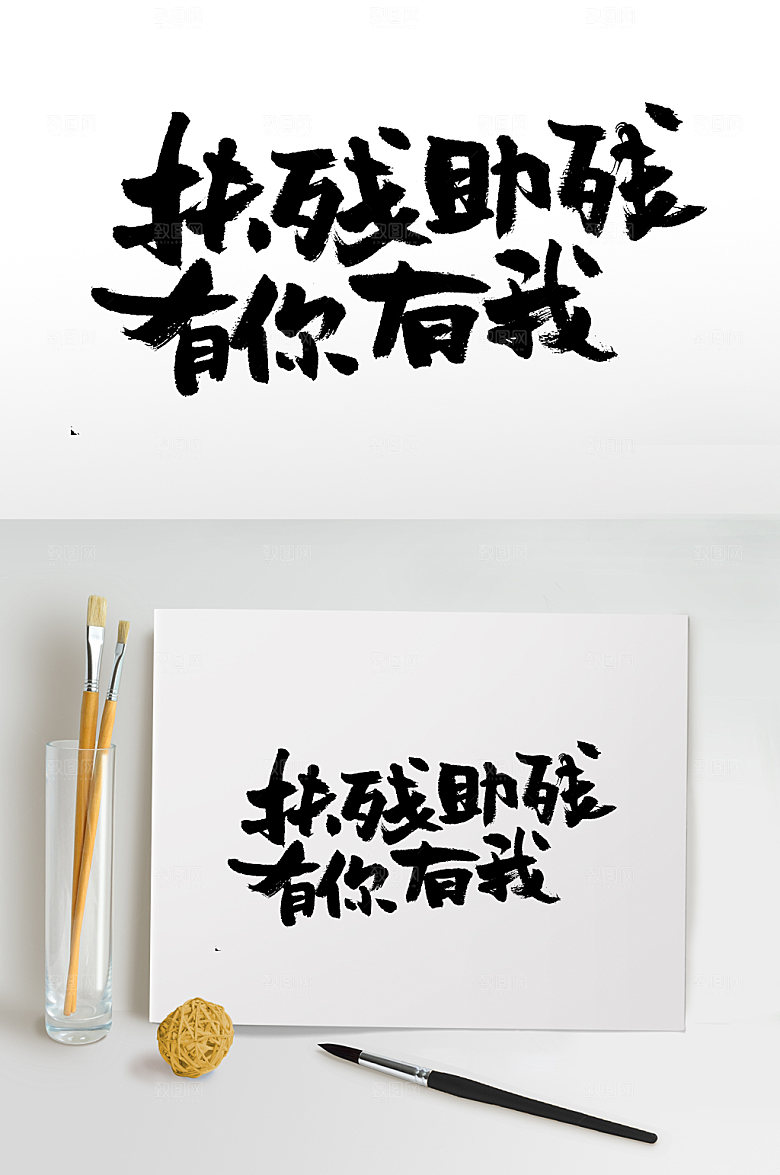 扶残助残
有你有我
扶残助残
有你有我